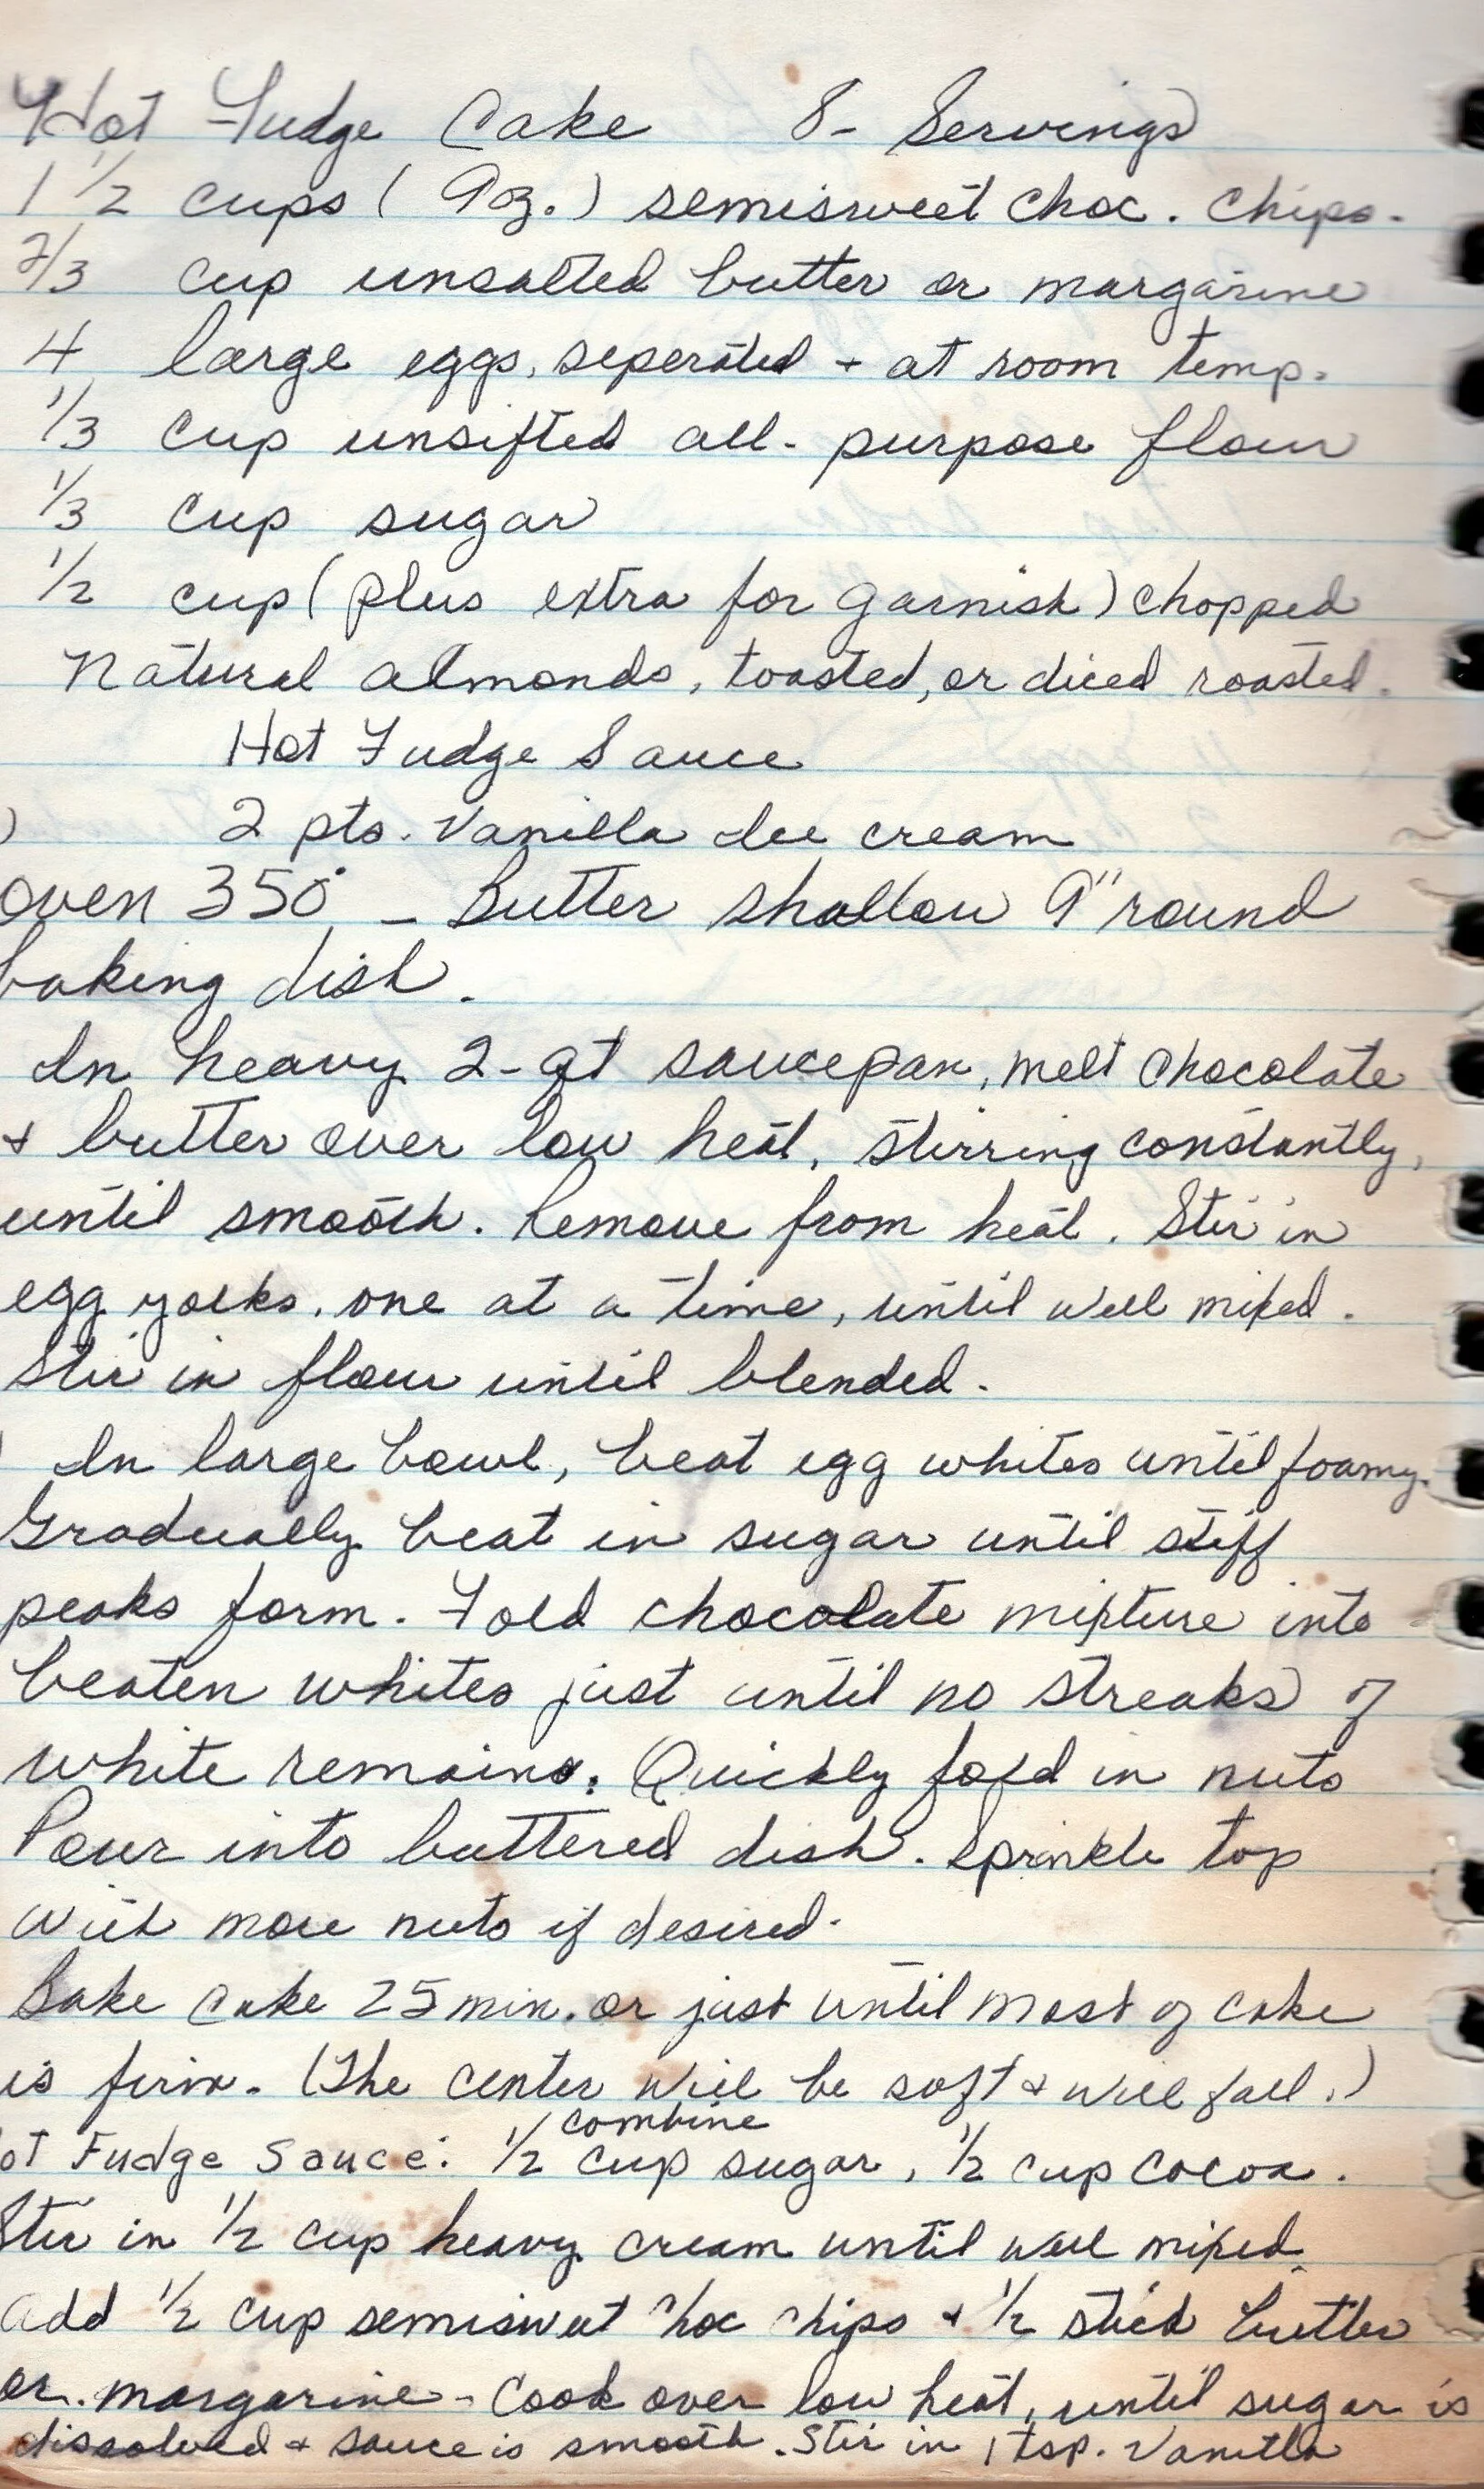 Hot Fudge Cake 8- Servings
1 1/2 cups ( 9 oz. ) semisweet choc. chips.
2/3 cup unsalted butter or margarine
4 large eggs, seperated + at room temp.
1/3 cup unsifted all-purpose flour
1/3 cup sugar
1/2 cup ( plus extra for garnish ) chopped
Natural almonds, toasted, or diced roasted.
Hot Fudge Sauce
) 2 pts. Vanilla Ice cream
oven 350° - Butter shallow 9" round
baking dish.
In heavy 2-qt saucepan, melt chocolate
+ butter over low heat, stirring constantly,
until smooth. Remove from heat. Stir in
egg yolks, one at a time, until well mixed.
Stir in flour until blended.
) In large bowl, beat egg whites until foamy.
Gradually beat in sugar until stiff
peaks form. Fold chocolate mixture into
beaten whites just until no streaks of
white remains. Quickly fold in nuts
Pour into buttered dish. Sprinkle top
with more nuts if desired.
Bake cake 25 min. or just until most of cake
is firm. (The center will be soft + will fall.)
combine
ot Fudge Sauce: 1/2 cup sugar, 1/2 cup cocoa.
Stir in 1/2 cup heavy cream until well mixed.
Add 1/2 cup semisweet choc chips + 1/2 stick butter
or margarine - Cook over low heat, until sugar is
dissolved + sauce is smooth. Stir in 1 tsp. Vanilla